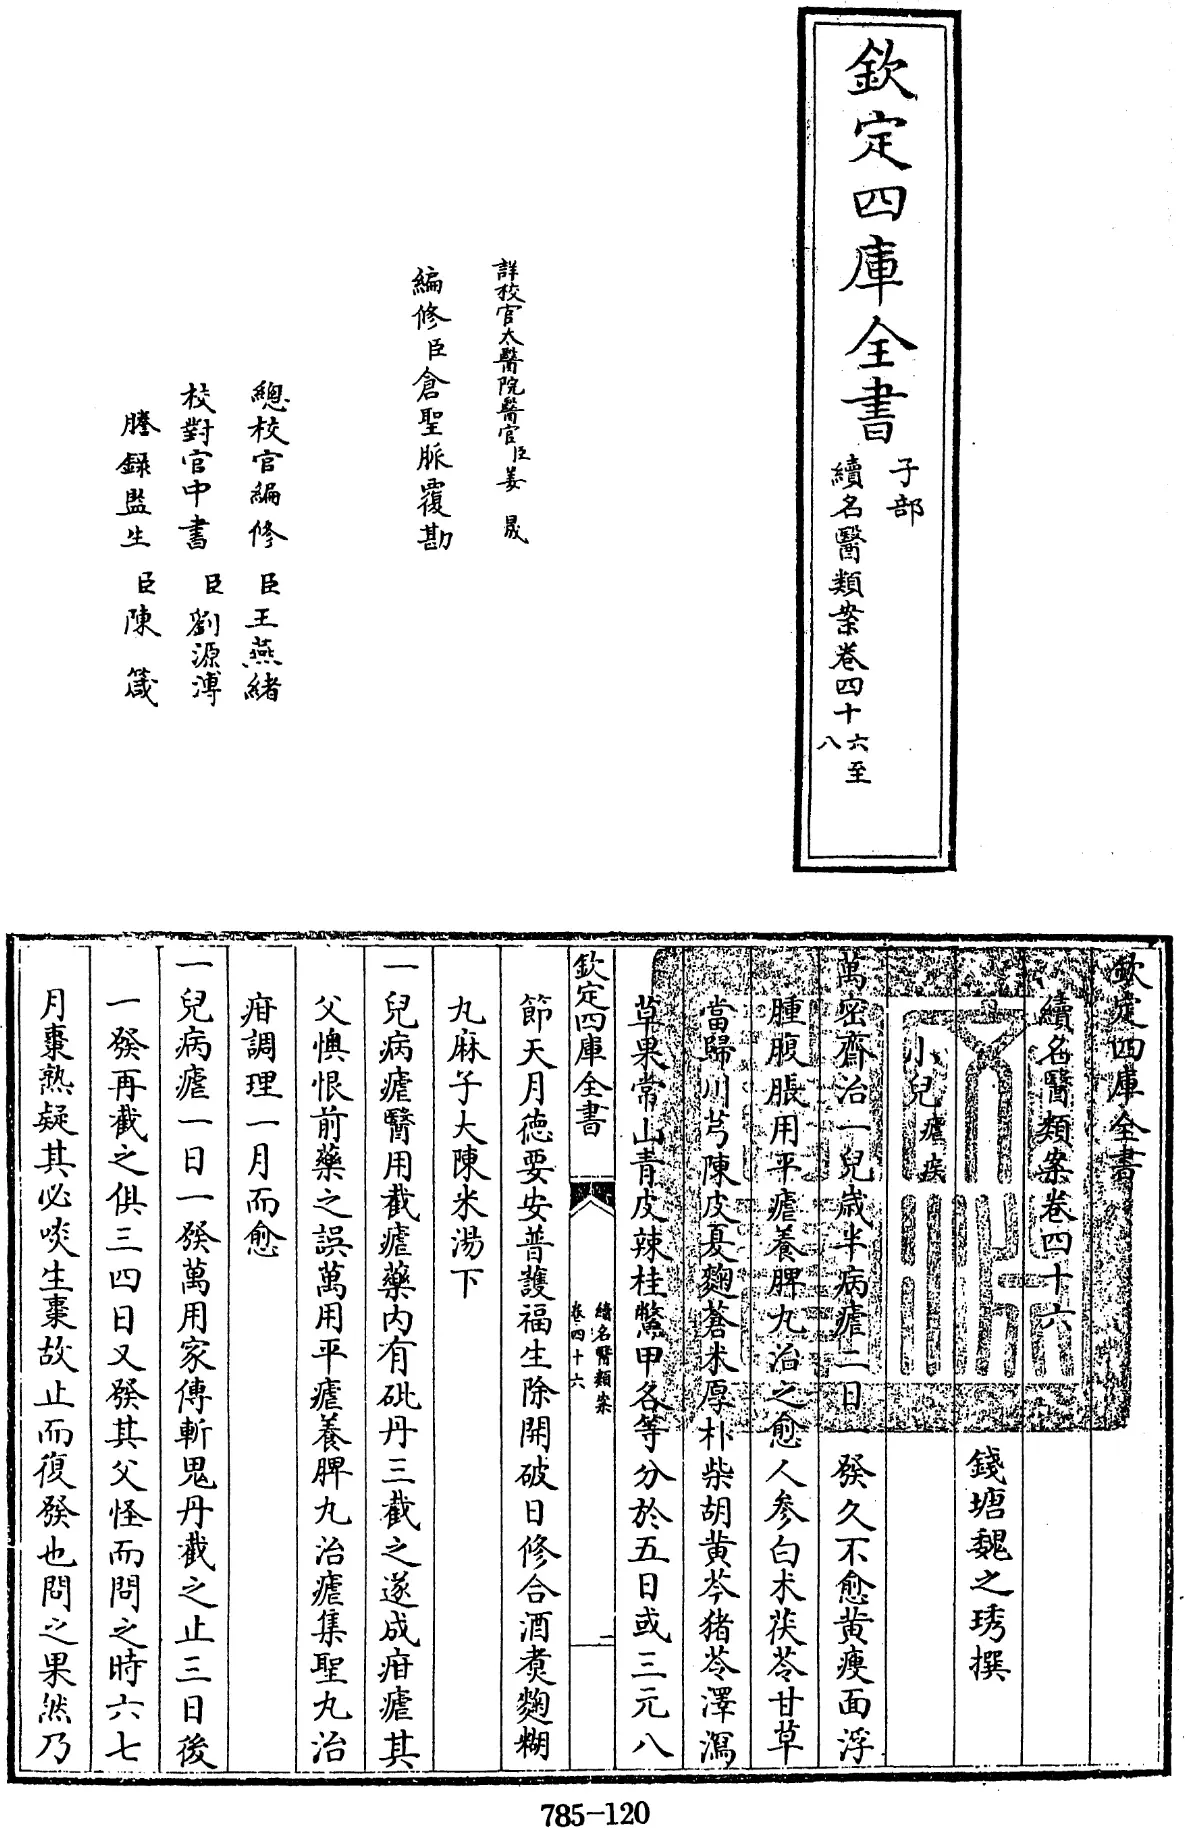 欽定四庫全書
子部
續名醫類案卷四十六至
八
詳校官太醫院醫官臣姜晟
編修臣倉聖脈覆勘
總校官編修臣王燕緒
校對官中書臣劉源溥
謄錄監生臣陳箴
欽定四庫全書
續名醫類案卷四十六
錢塘魏之琇撰
小兒瘧疾
萬密齋治一兒歲半病瘧二日一發久不愈黃瘦面浮
腫腹脹用平瘧養脾丸治之愈人參白朮茯苓甘草
當歸川芎陳皮夏麴蒼朮厚朴柴胡黃芩豬苓澤瀉
草果常山青皮辣桂鱉甲各等分於五日或三元八
欽定四庫全書
續名醫類案
卷四十六
一
節天月德要安普護福生除開破日修合酒煮麴糊
丸麻子大陳米湯下
一兒病瘧醫用截瘧藥內有砒丹三截之遂成疳瘧其
父懊恨前藥之誤萬用平瘧養脾丸治瘧集聖丸治
疳調理一月而愈
一兒病瘧一日一發萬用家傳斬鬼丹截之止三日後
一發再截之俱三四日又發其父怪而問之時六七
月棗熟疑其必啖生棗故止而復發也問之果然乃
785-120